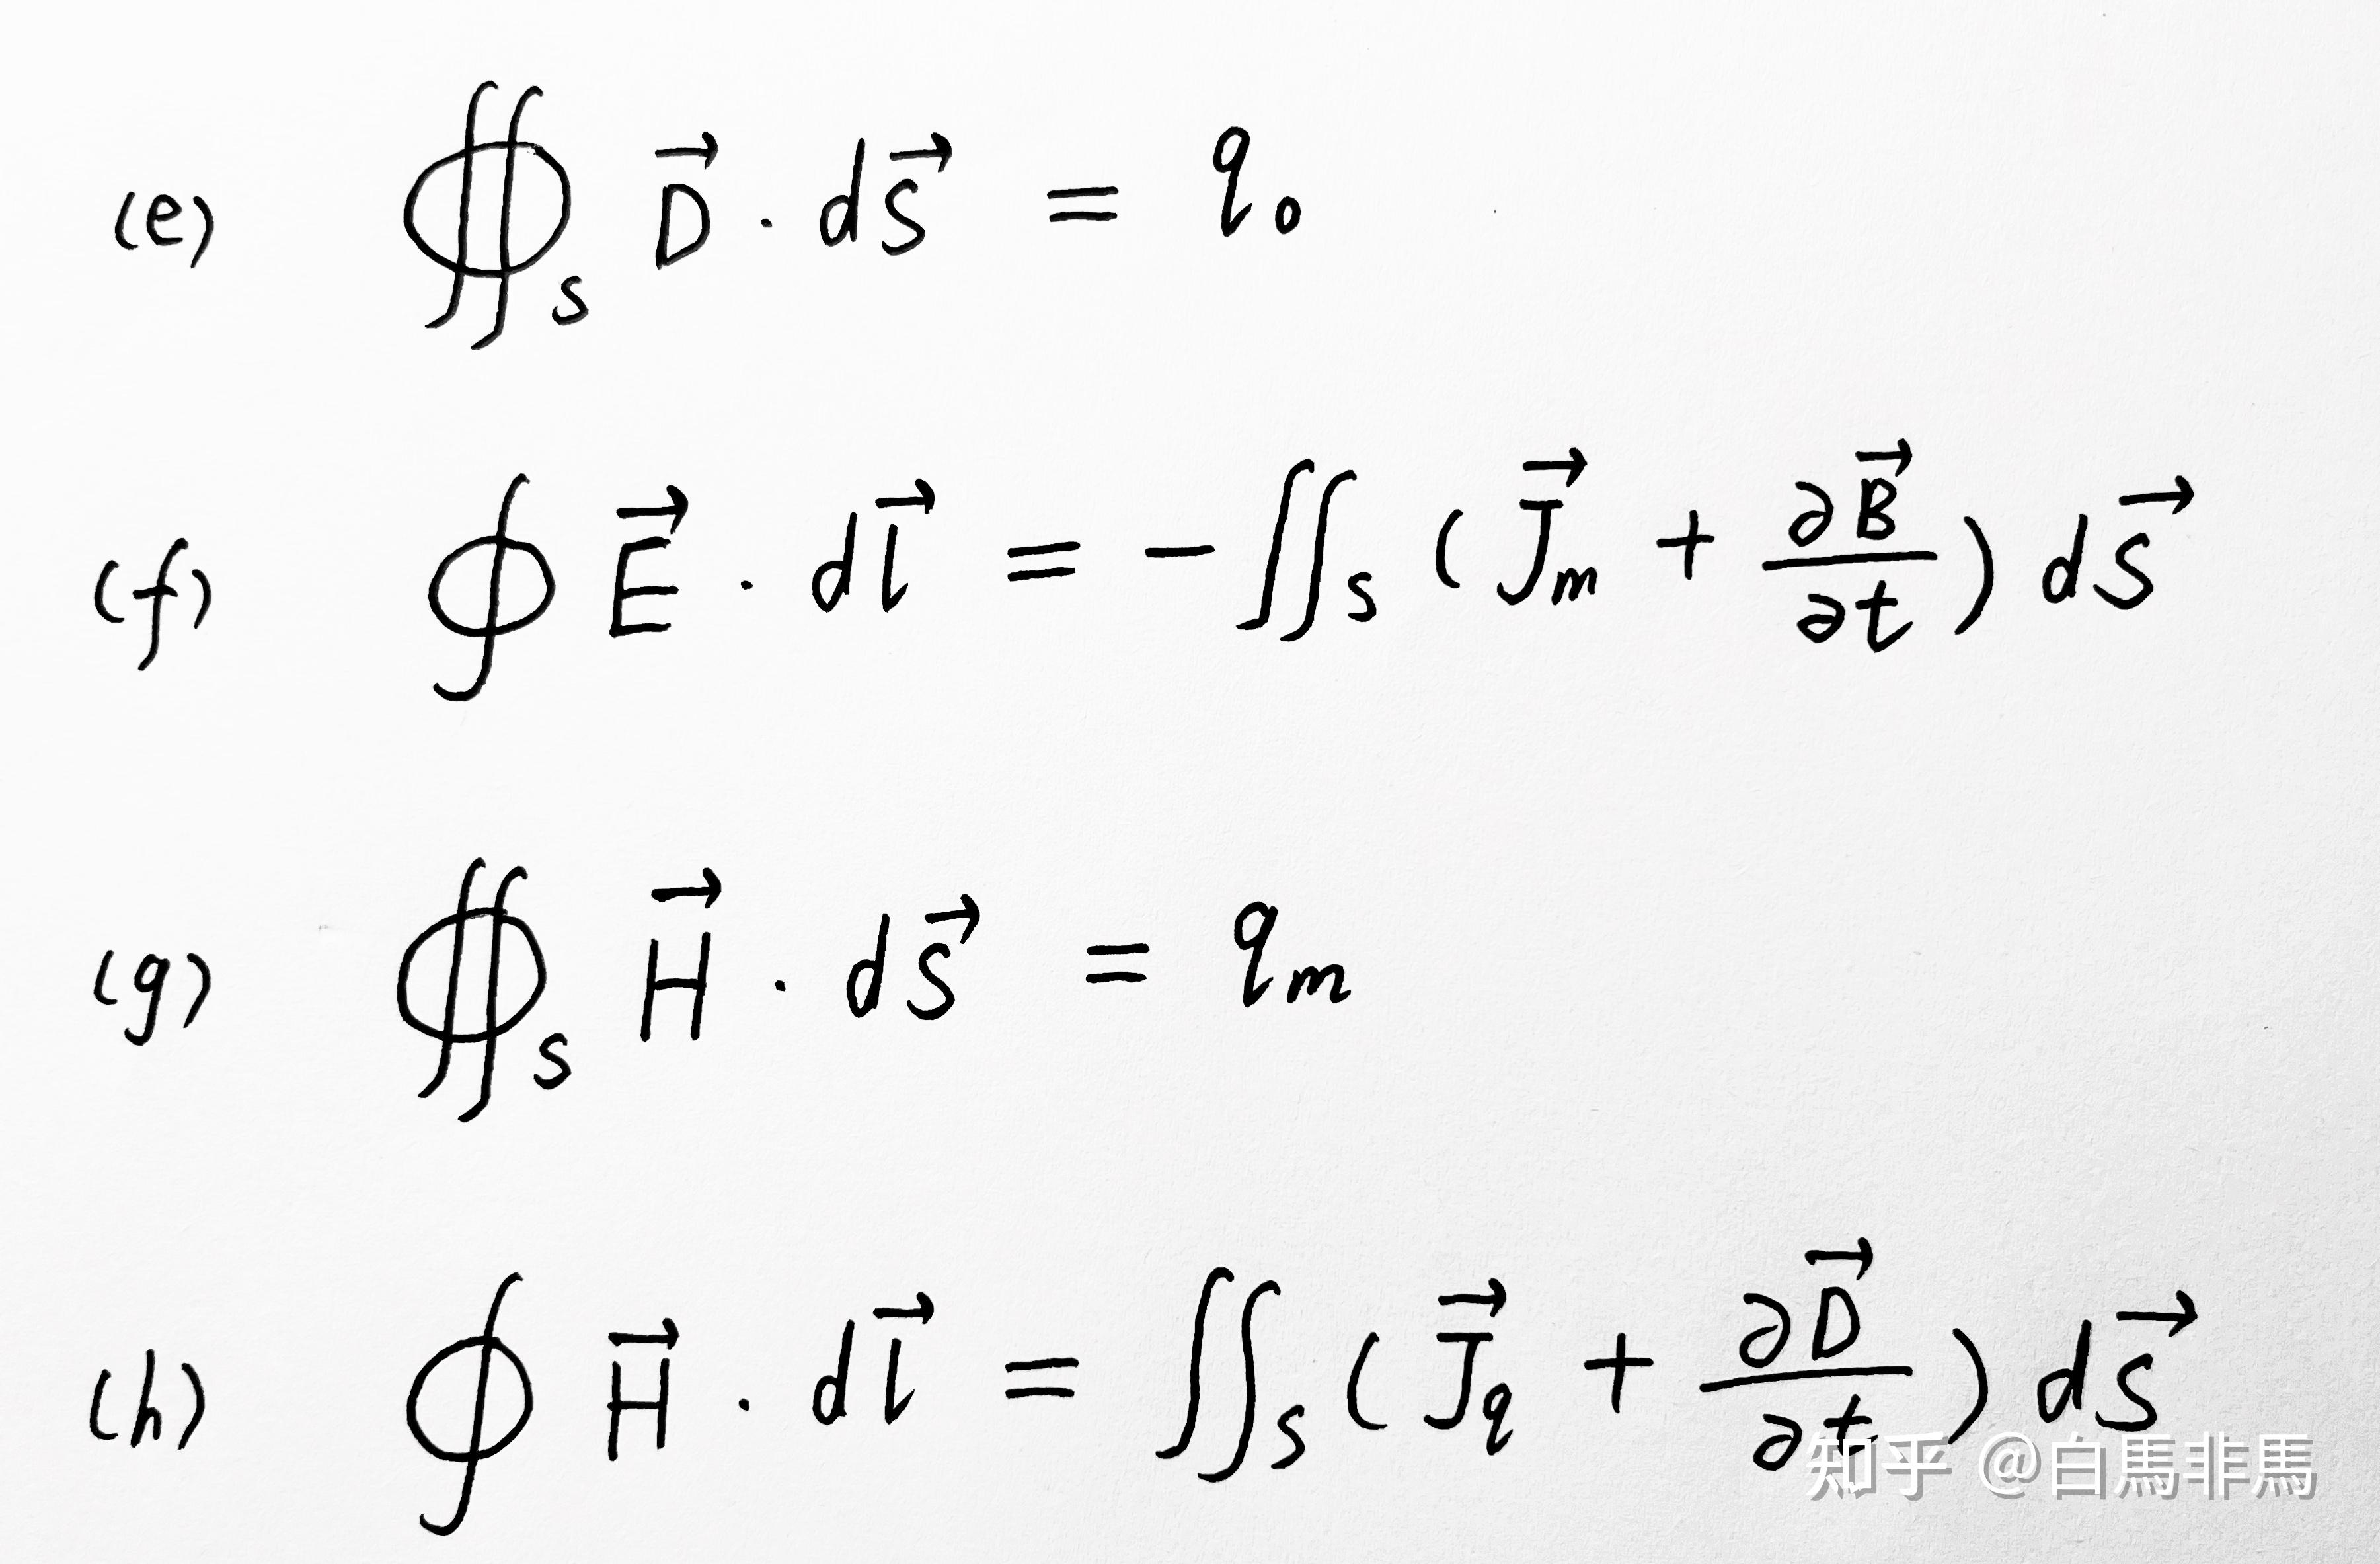 (e) ∯_S D⃗ · dS⃗ = q₀
(f) ∮ E⃗ · dl⃗ = -∬_S (J⃗_m + ∂B⃗/∂t) dS⃗
(g) ∯_S H⃗ · dS⃗ = q_m
(h) ∮ H⃗ · dl⃗ = ∬_S (J⃗_q + ∂D⃗/∂t) dS⃗
知乎 @白馬非馬